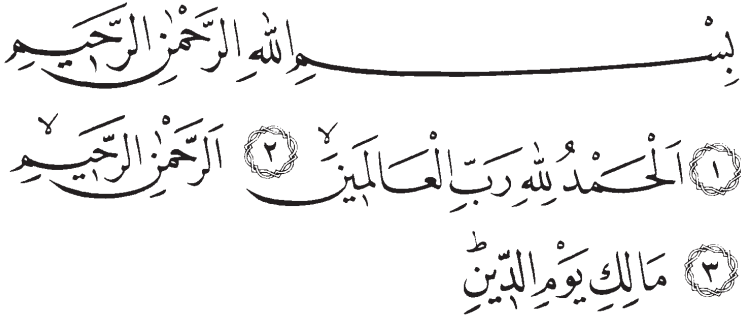 بِسْمِ اللهِ الرَّحْمٰنِ الرَّحٖيمِ
١ اَلْحَمْدُ لِلهِ رَبِّ الْعَالَمٖينَۙ ٢ اَلرَّحْمٰنِ الرَّحٖيمِۙ
٣ مَالِكِ يَوْمِ الدّٖينِؕ